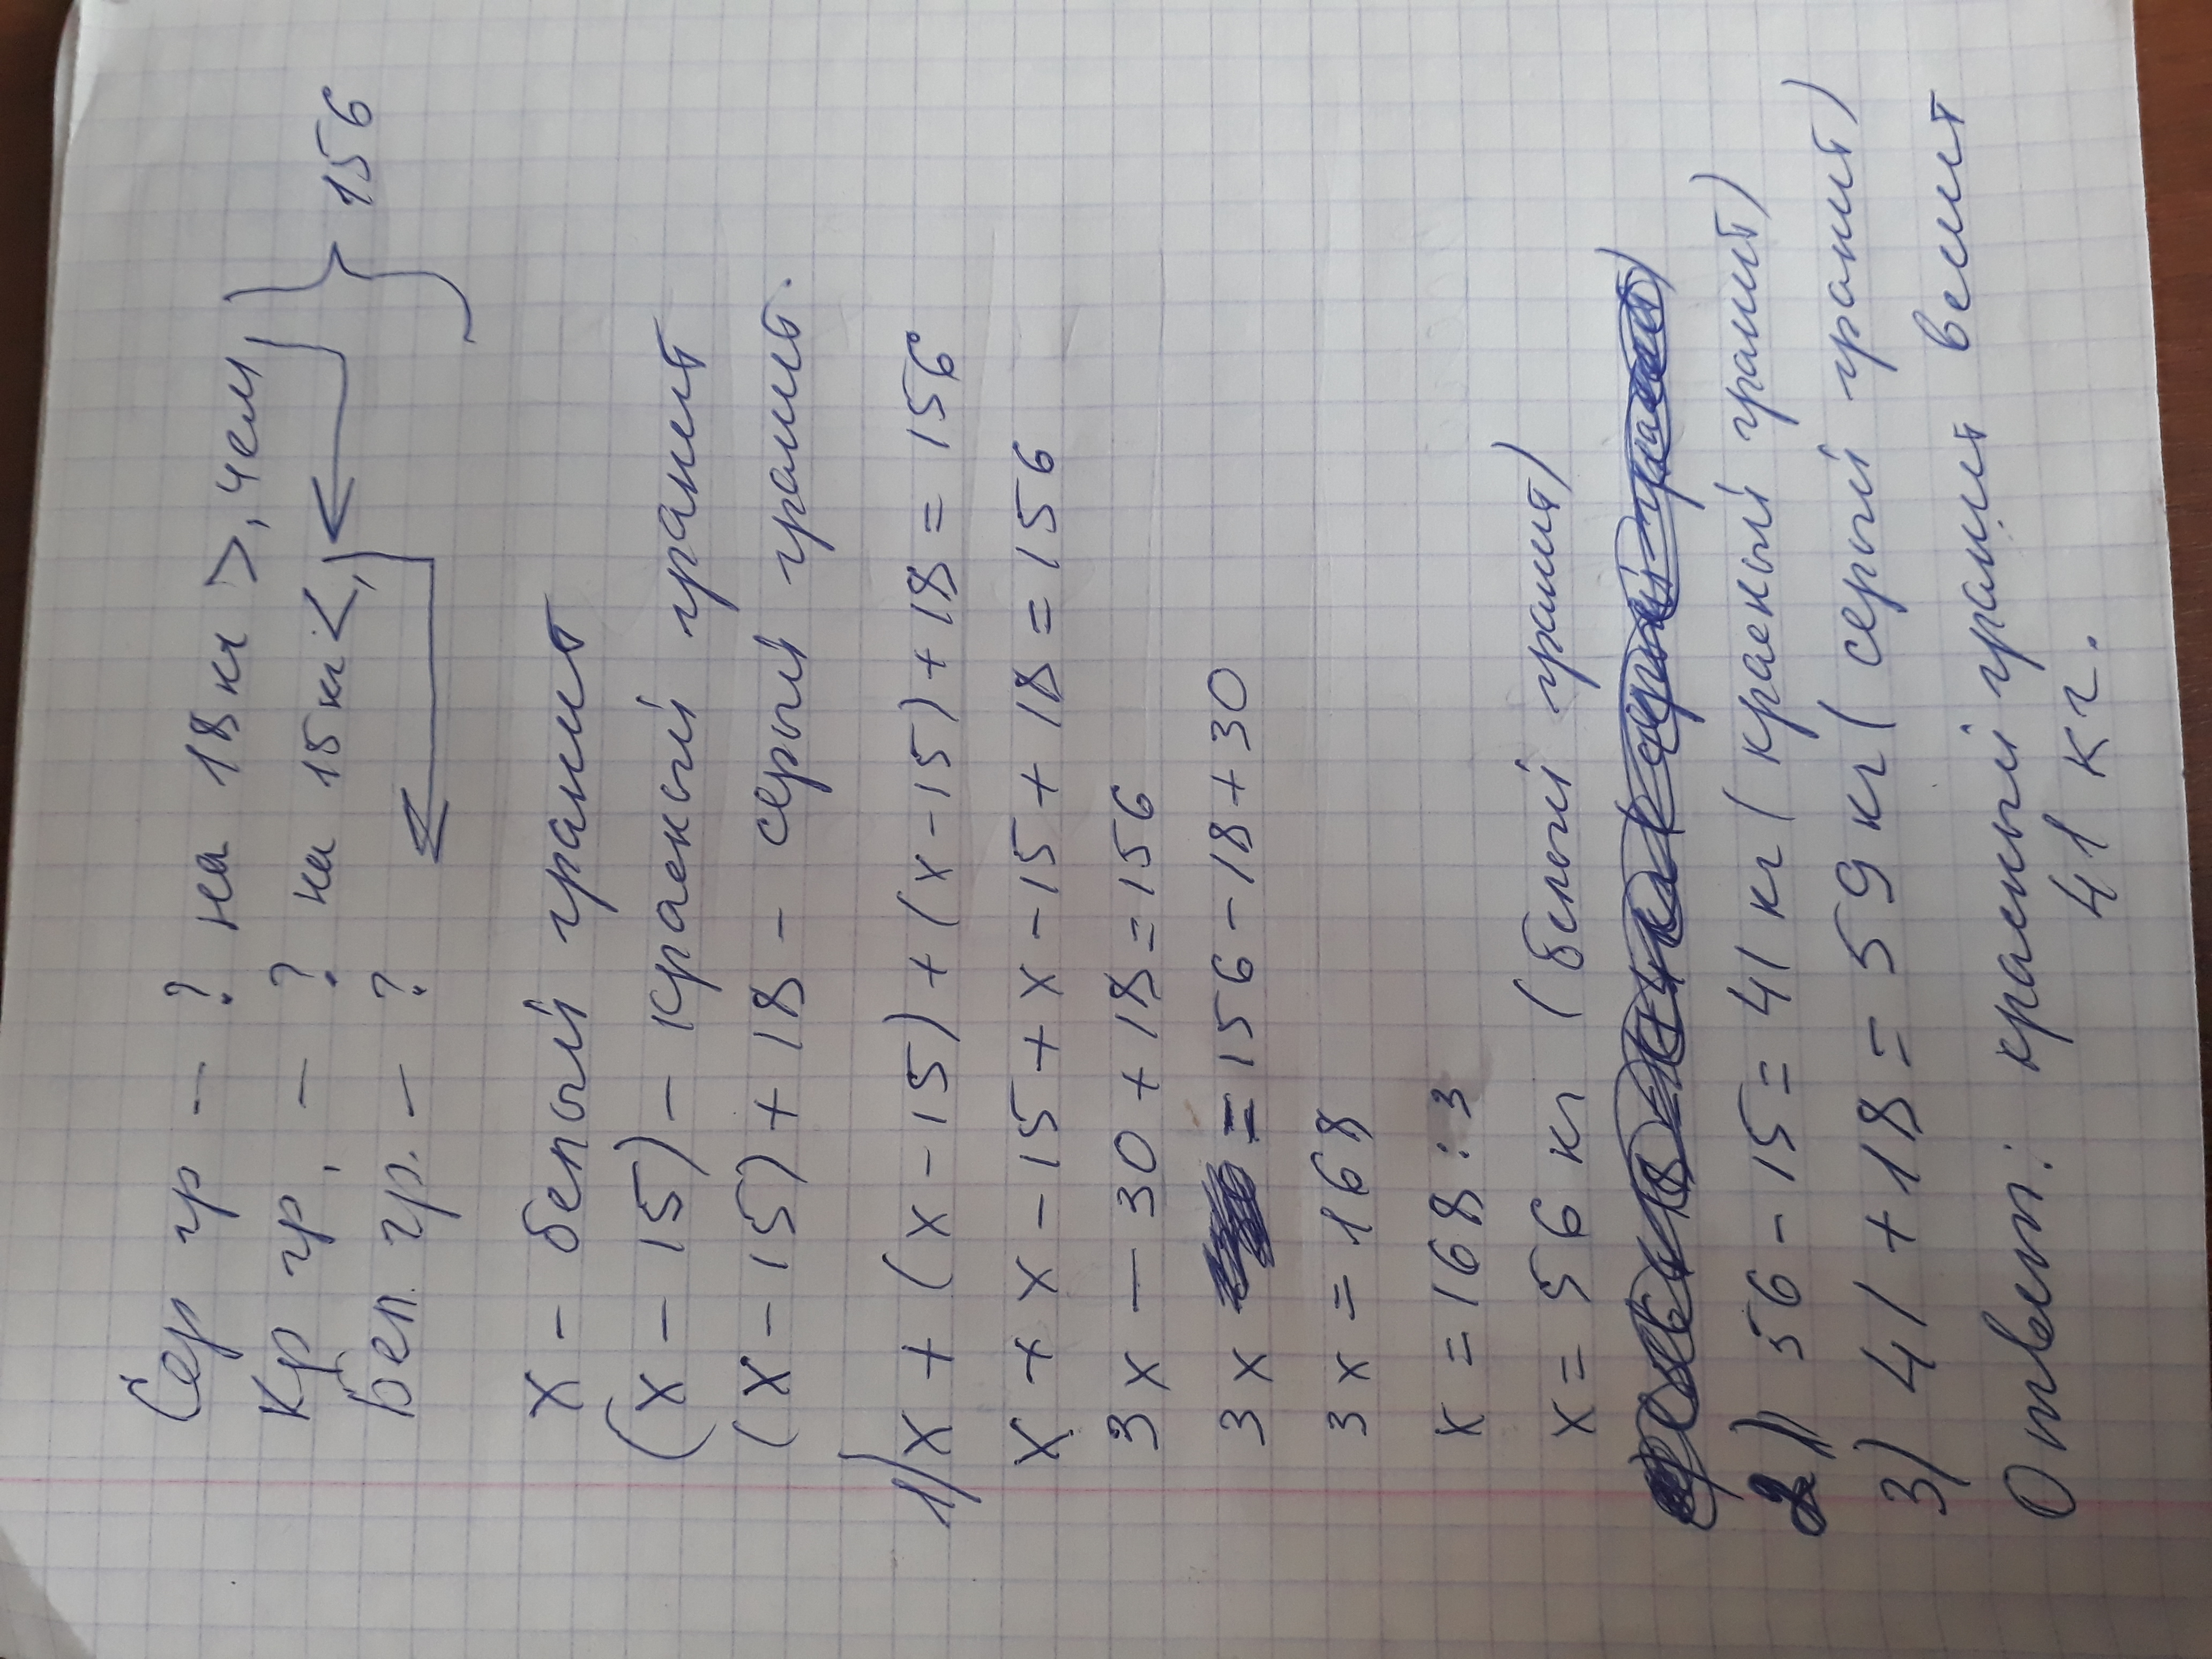 Сер гр - ? на 18 кг >, чем
Кр гр. - ? на 15 кг <, } 156
Бел. гр. - ?
х - белый гранит
(х - 15) - красный гранит
(х - 15) + 18 - серый гранит.
1) х + (х - 15) + (х - 15) + 18 = 156
х + х - 15 + х - 15 + 18 = 156
3х - 30 + 18 = 156
3х = 156 - 18 + 30
3х = 168
х = 168 : 3
х = 56 кг (белый гранит)
2) 56 - 15 = 41 кг (красный гранит)
3) 41 + 18 = 59 кг (серый гранит)
Ответ: красный гранит весит
41 кг.